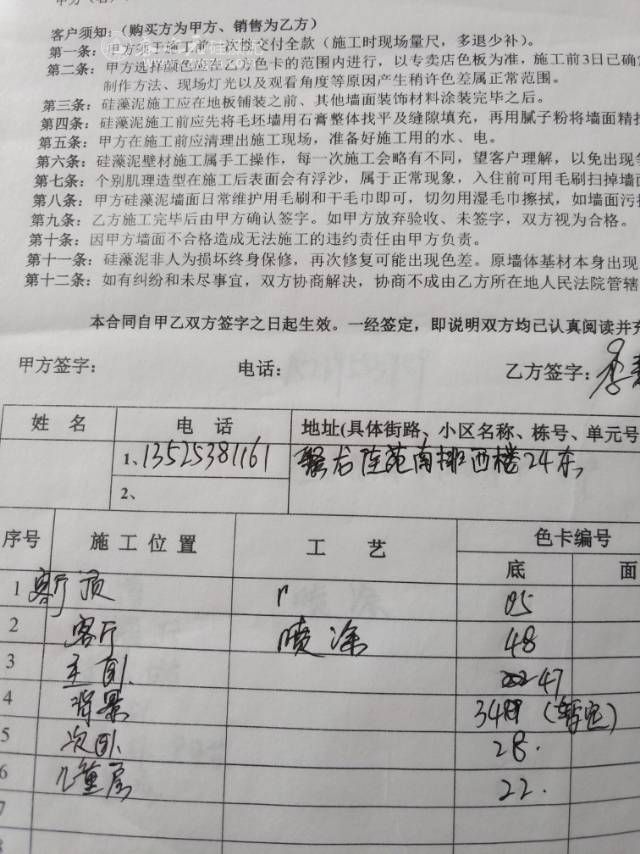 甲方（客
客户须知：（购买方为甲方、销售为乙方）
第一条：甲方须于施工前一次性交付全款（施工时现场量尺，多退少补）。
第二条：甲方选择颜色应在乙方色卡的范围内进行，以专卖店色板为准，施工前3日已确
制作方法、现场灯光以及观看角度等原因产生稍许色差属正常范围。
第三条：硅藻泥施工应在地板铺装之前、其他墙面装饰材料涂装完毕之后。
第四条：硅藻泥施工前应先将毛坯墙用石膏整体找平及缝隙填充，再用腻子粉将墙面精
第五条：甲方在施工前应清理出施工现场，准备好施工用的水、电。
第六条：硅藻泥壁材施工属手工操作，每一次施工会略有不同，望客户理解，以免出现
第七条：个别肌理造型在施工后表面会有浮沙，属于正常现象，入住前可用毛刷扫掉墙
第八条：甲方硅藻泥墙面日常维护用毛刷和干毛巾即可，切勿用湿毛巾擦拭，如墙面污
第九条：乙方施工完毕后由甲方确认签字。如甲方放弃验收、未签字，双方视为合格。
第十条：因甲方墙面不合格造成无法施工的违约责任由甲方负责。
第十一条：硅藻泥非人为损坏终身保修，再次修复可能出现色差。原墙体基材本身出现
第十二条：如有纠纷和未尽事宜，双方协商解决，协商不成由乙方所在地人民法院管辖
本合同自甲乙双方签字之日起生效。一经签定，即说明双方均已认真阅读并
甲方签字： 电话： 乙方签字：李
姓 名 电 话 地址(具体街路、小区名称、栋号、单元号
1、13525381161 南排西楼24东
2、
序号 施工位置 工 艺 色卡编号
底 面
1 客厅顶 05
2 客厅 喷涂 48
3 主卧 47
4 背景 348 (暂定)
5 次卧 28.
6 儿童房 22.
7
8